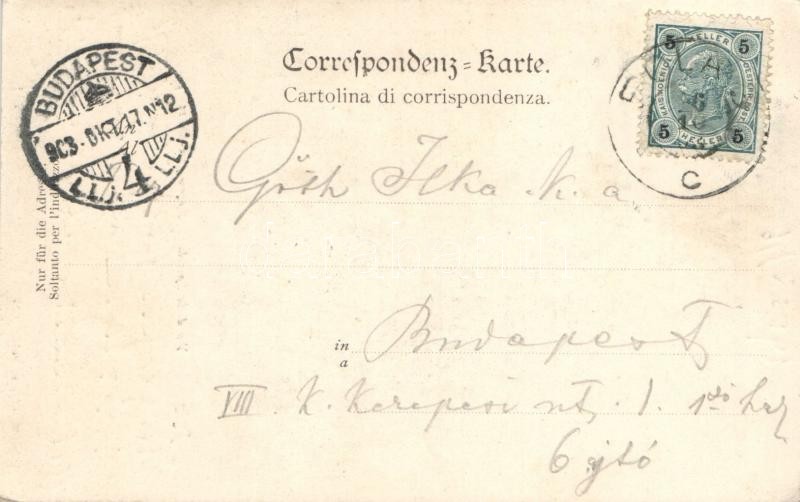 Correspondenz-Karte.
Cartolina di corrispondenza.
BUDAPEST
903. OKT. 17. N12
4
Nur für die Adresse
Soltanto per l'indirizzo
5 HELLER 5
5 HELLER 5
C
Góth Ilka k. a.
in Budapest
a
VIII K. Kerepesi út, 1. 1ső ház
6 ajtó